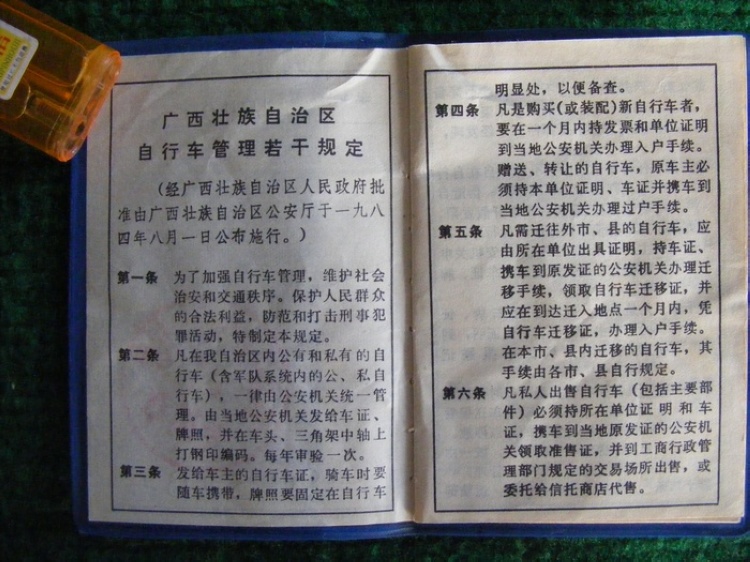 广西壮族自治区
自行车管理若干规定
(经广西壮族自治区人民政府批
准由广西壮族自治区公安厅于一九八
四年八月一日公布施行。)
第一条 为了加强自行车管理，维护社会
治安和交通秩序。保护人民群众
的合法利益，防范和打击刑事犯
罪活动，特制定本规定。
第二条 凡在我自治区内公有和私有的自
行车（含军队系统内的公、私自
行车），一律由公安机关统一管
理。由当地公安机关发给车证、
牌照，并在车头、三角架中轴上
打钢印编码。每年审验一次。
第三条 发给车主的自行车证，骑车时要
随车携带，牌照要固定在自行车
明显处，以便备查。
第四条 凡是购买(或装配)新自行车者，
要在一个月内持发票和单位证明
到当地公安机关办理入户手续。
赠送、转让的自行车，原车主必
须持本单位证明、车证并携车到
当地公安机关办理过户手续。
第五条 凡需迁往外市、县的自行车，应
由所在单位出具证明，持车证、
携车到原发证的公安机关办理迁
移手续，领取自行车迁移证，并
应在到达迁入地点一个月内，凭
自行车迁移证，办理入户手续。
在本市、县内迁移的自行车，其
手续由各市、县自行规定。
第六条 凡私人出售自行车（包括主要部
件）必须持所在单位证明和车
证，携车到当地原发证的公安机
关领取准售证，并到工商行政管
理部门规定的交易场所出售，或
委托给信托商店代售。